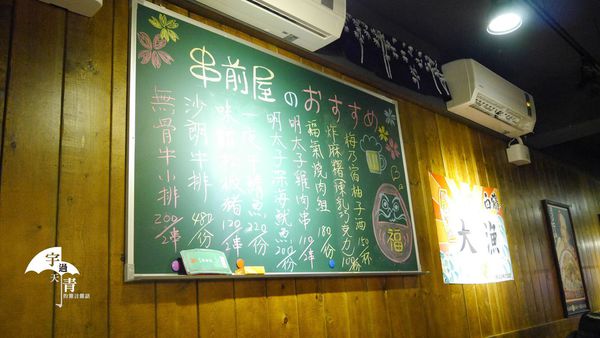 串前屋のおすすめ
梅乃宿柚子酒 150/杯
炸麻糬(煉乳巧克力) 100/份
福氣燒肉組 180/份
明太子雞肉串 110/串
明太子深海魷魚 200/份
一夜干鯖魚 220/份
味噌松阪豬 120/串
沙朗牛排 480/份
無骨牛小排 200/2串
Bar
福
大漁
宇過天青